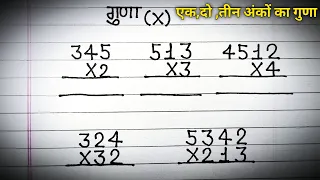 गुणा (X) एक,दो ,तीन अंकों का गुणा
345 513 4512
X2 X3 X4
324 5342
X32 X213